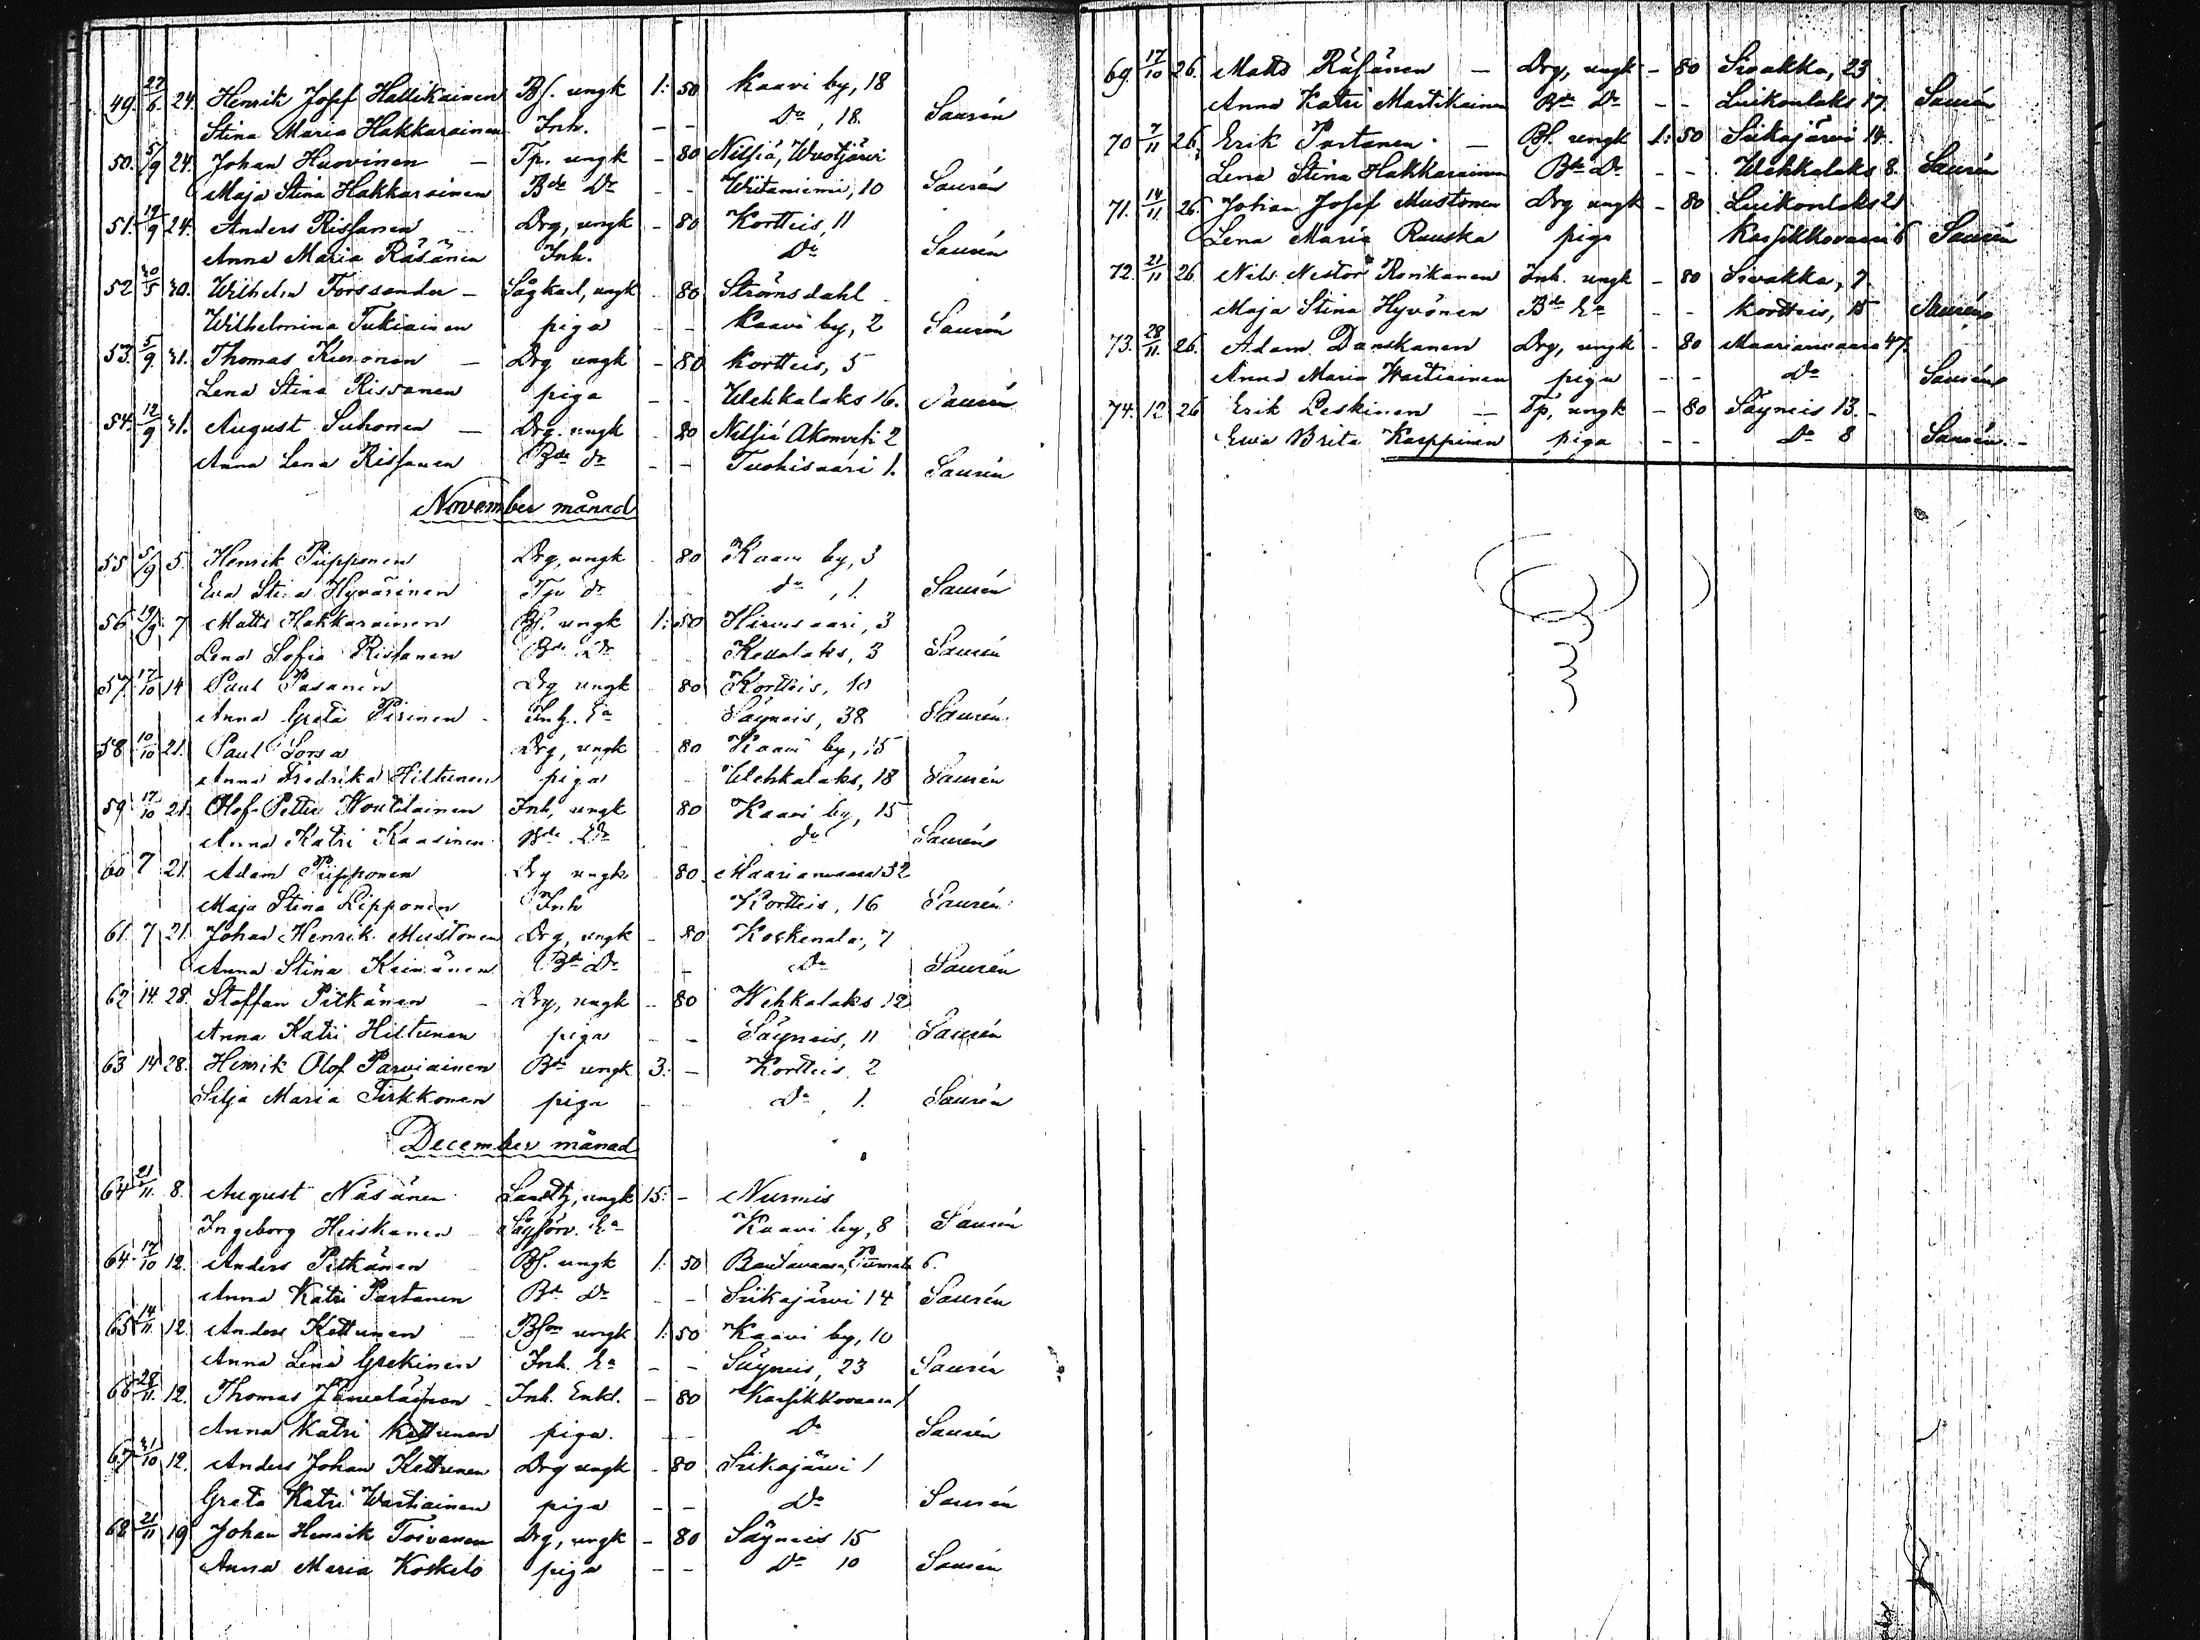 49. 27/6. 24. Henrik Josef Hallikainen Bf. ungk 1: 50 Kaavi by, 18
Stina Maria Hakkarainen Inh. - - Do, 18. Saurén
50. 5/9 24. Johan Huovinen - Tp. ungk - 80 Nilsiä, Wuotjärvi
Maja Stina Hakkarainen Bde Dr - - Wiitaniemi, 10 Saurén
51. 12/9 24. Anders Rissanen - Drg, ungk - 80 Kortteis, 11
Anna Maria Räsänen Inh. Do Saurén
52 30/5 30. Wilhelm Forssander - Sågkarl, ungk - 80 Strömsdahl
Wilhelmina Tukiainen piga - - Kaavi by, 2 Saurén
53. 5/9. 31. Thomas Kinonen - Drg ungk - 80 Kortteis, 5
Lena Stina Rissanen piga - - Wehkalaks 16. Saurén
54. 12/9 31. August Suhonen - Drg. ungk - 80 Nilsiä 2
Anna Lena Rissanen Bde dr - - Tuohisaari 1. Saurén
November månad
55 5/9 5. Henrik Piipponen Drg, ungk - 80 Kaavi by, 3
Eva Stina Hyvärinen Tp dr do, 1. Saurén
56 19/9. 7 Matts Hakkarainen Bf. ungk 1: 50 Hirvisaari, 3
Lena Sofia Rissanen Bde Dr , 3 Saurén
57. 17/10 14 Paul Pasanen Drg ungk - 80 Kortteis, 10
Anna Greta Pirinen - Inh. Ea Säyneis, 38 Saurén
58 10/10 21. Paul Sorsa Drg, ungk - 80 Kaavi by, 15
Anna Fredrika Hiltunen piga - Wehkalaks, 18 Saurén
59 17/10 21. Olof Petter Woutilainen Inh, ungk 80 Kaavi by, 15
Anna Katri Kaasinen Bde Dr - do Saurén
60 7 21. Adam Piipponen Drg ungk 80. Maarianvaara 32
Maja Stina Lipponen Inh Kortteis, 16 Saurén
61. 7 21. Johan Henrik Mustonen Drg, ungk - 80 Koskenala, 7
Anna Stina Keinänen Bde Dr - Do Saurén
62 14. 28. Staffan Pitkänen - Drg, ungk - 80 Wehkalaks 12
Anna Katri Hiltunen piga - - Säyneis, 11 Saurén
63 14 28. Henrik Olof Parviainen Bde ungk 3: - Kortteis 2
Silja Maria Tirkkonen piga - - Do, 1. Saurén
December månad
64 21/11. 8. August Näsänen , ungk 15: - Nurmis
Ingeborg Heiskanen - Ea Kaavi by, 8 Saurén
64. 17/10 12. Anders Pitkänen Bf. ungk 1: 50 6.
Anna Katri Partanen Bde Dr - - Siikajärvi 14 Saurén
65 14/11 12. Anders Kettunen - Bfon ungk 1: 50 Kaavi by, 10
Anna Lena Inh. Ea - - Säyneis, 23 Saurén
66 28/11. 12. Thomas - Inh. Enkl. - 80 Karsikkovaara 1
Anna Katri Kettunen piga. - - Do Saurén
67 31/10 12. Anders Johan Kettunen Drg ungk - 80 Siikajärvi 1
Greta Katri Wartiainen piga - - Do Saurén
68 21/11 19 Johan Henrik Toivanen Drg, ungk - 80 Säyneis 15
Anna Maria Koskelo piga - - Do 10 Saurén
69. 17/10 26. Matts Räsänen - Drg, ungk - 80 Sivakka, 23
Anna Katri Martikainen Bde Dr - - Luikonlaks 17. Saurén
70 7/11 26. Erik Partanen - Bf. ungk 1: 50 Siikajärvi 14.
Lena Stina Hakkarainen Bde Dr - - Wehkalaks 8. Saurén
71. 14/11. 26. Johan Josef Mustonen Drg ungk - 80 Luikonlaks 21
Lena Maria Ruuska piga Karsikkovaara 6 Saurén
72. 21/11 26 Nils Nestor Ronkanen Inh. ungk - 80 Sivakka, 7.
Maja Stina Hyvönen Bde Ea - - Kortteis, 15 Saurén
73. 28/11. 26. Adam Danskanen Drg, ungk - 80 Maarianvaara 47.
Anna Maria Wartiainen piga - - Do Saurén
74. 12 26 Erik Leskinen - Tp, ungk - 80 Säyneis 13. -
Ewa Brita Karppinen piga - - Do 8 Saurén -